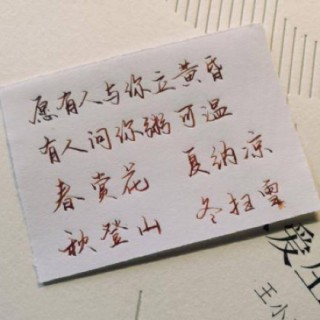 愿有人与你立黄昏
有人问你粥可温
春赏花 夏纳凉
秋登山 冬扫雪
爱生
王小